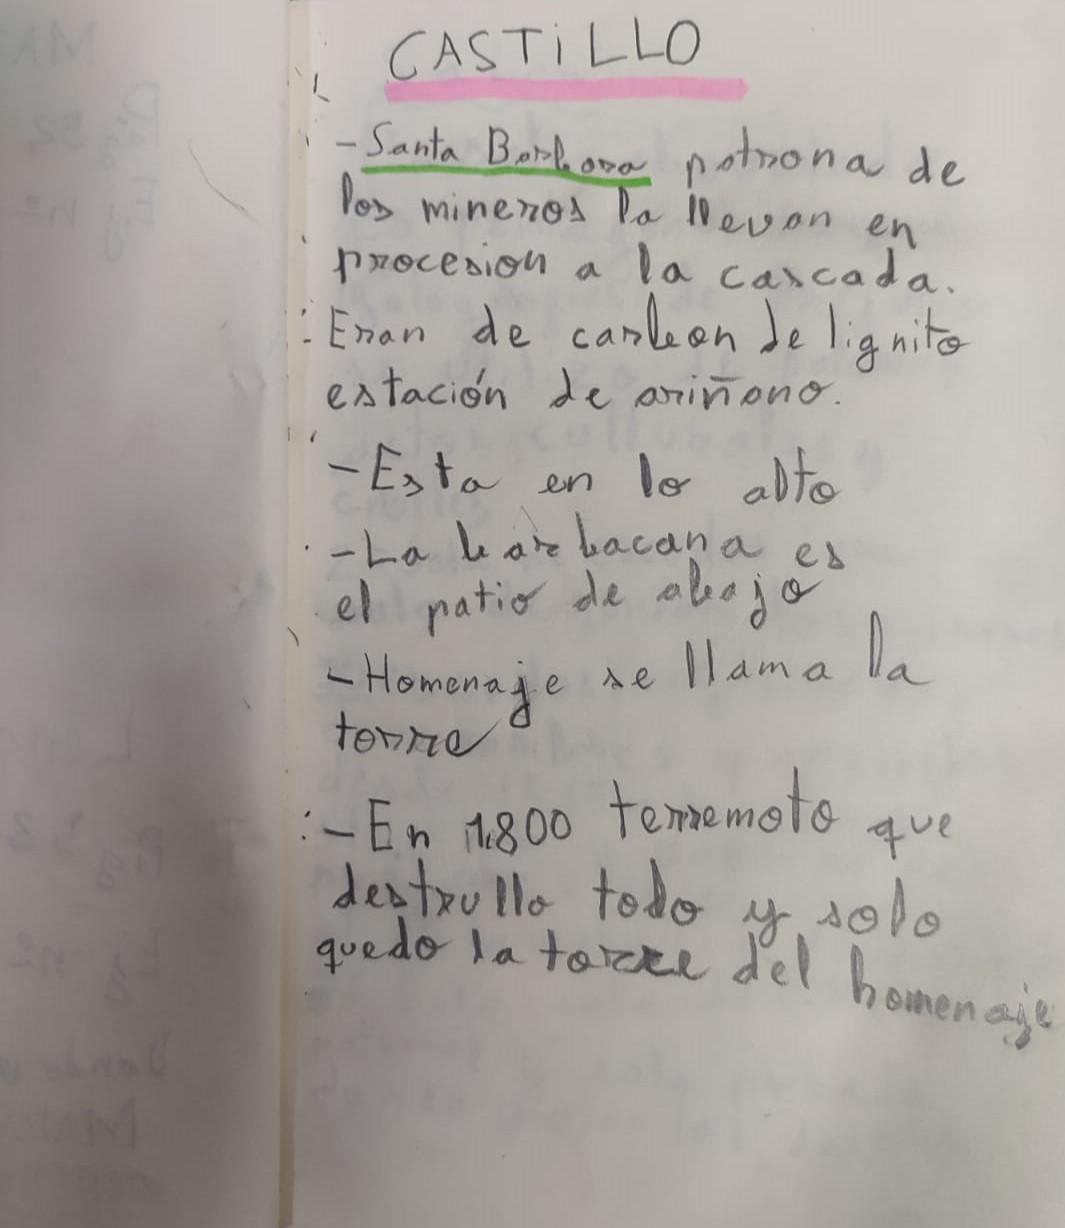 CASTILLO
- Santa Barbara patrona de
los mineros la llevan en
procesion a la cascada.
Eran de carbon de lignito
estación de ariñono.
- Esta en lo alto
- La barbacana es
el patio de abajo
- Homenaje se llama la
torre
- En 1.800 terremoto que
destrullo todo y solo
quedo la torre del homenaje